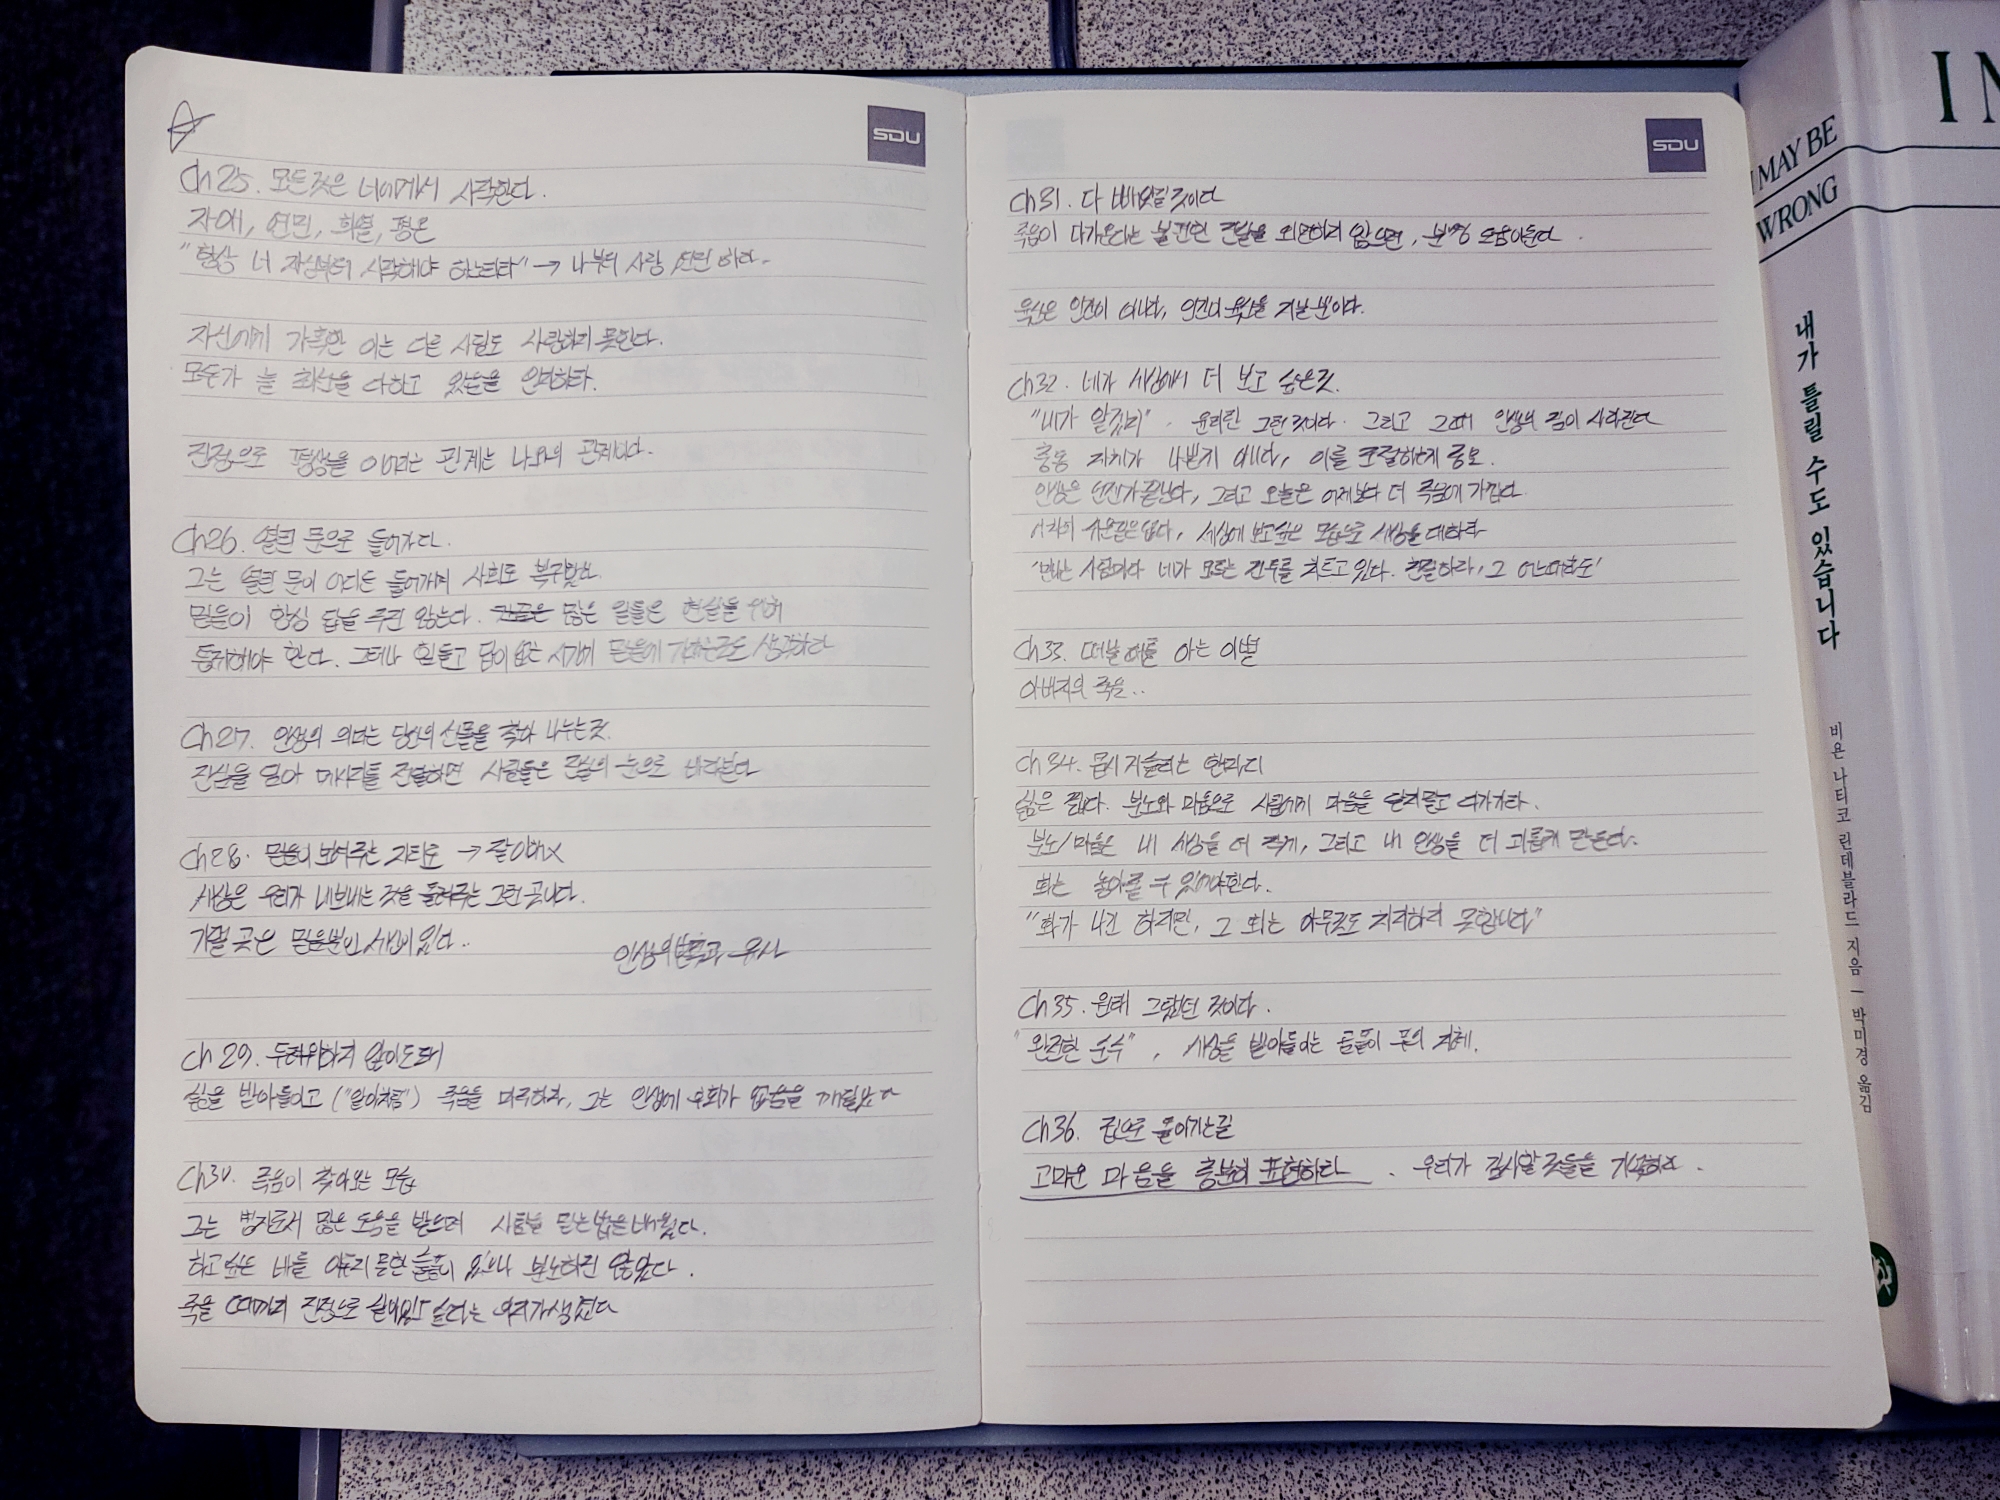 SDU
Ch25. 모든것은 너에게서 시작한다.
자애, 연민, 희열, 평온
"항상 너 자신부터 시작해야 하느니라" → 나부터 사랑 연민 하라.
자신에게 가혹한 이는 다른 사람도 사랑하지 못한다.
모든가 늘 최선을 다하고 있음을 인지하라.
진정으로 평생을 이어지는 관계는 나와의 관계이다.
Ch26. 열린 문으로 들어가다.
그는 열린 문이 어디든 들어가며 사회로 복귀했다.
믿음이 항상 답을 주진 않는다. 많은 일들은 현실을 위해
통제해야 한다. 그러나 힘들고 답이 없는 시기에 믿음에 기대는것도 생각하라
Ch27. 인생의 의미는 당신의 선물을 찾아 나누는것.
진심을 담아 메시지를 전달하면 사람들은 진심의 눈으로 바라본다
Ch28. 믿음이 보여주는 지티로 →
세상은 우리가 내보내는 것을 돌려주는 그런 곳이다.
기댈 곳은 믿음뿐인 시간이 있다..
인생의 과 유사
Ch 29. 두려워하지 않아도 돼
삶을 받아들이고 ("알아차림") 죽음을 마주하라, 그는 인생에 후회가 없음을 깨달았다
Ch30. 죽음이 찾아오는 모습
그는 병자로서 많은 도움을 받으며 사람을 믿는법을 배웠다.
하고 싶은 바를 이루지 못한 슬픔이 있으나 분노하진 않았다.
죽을 때까지 진정으로 살아있고 싶다는 의지가 생겼다
SDU
Ch31. 다 빼앗길 것이다
죽음이 다가온다는 불편한 진실을 외면하지 않으면, 분명 도움이된다.
육신은 인간이 아니라, 인간이 육신을 지닐 뿐이다.
Ch32. 네가 세상에서 더 보고 싶은것.
"내가 알겠지". 윤리란 그런 것이다. 그리고 그때 인생의 짐이 사라진다
충동 자체가 나쁜게 아니라, 이를 조절하는게 중요.
인생은 언젠가 끝난다, 그리고 오늘은 어제보다 더 죽음에 가깝다
, 세상에 보고싶은 모습으로 세상을 대하라
'만나는 사람마다 네가 모르는 전투를 치르고 있다. 친절하라, 그 어느때라도'
Ch33. 떠날 때를 아는 이별
아버지의 죽음..
Ch34. 몹시 거슬리는 한마디
삶은 짧다. 분노와 미움으로 사람에게 마음을 닫지말고 다가가라.
분노/미움은 내 세상을 더 작게, 그리고 내 인생을 더 괴롭게 만든다.
화는 놓아줄 수 있어야한다.
"화가 나긴 하지만, 그 화는 아무것도 차지하지 못합니다"
Ch35. 원래 그랬던 것이다.
"완전한 순수", 세상을 받아들이는
Ch36. 집으로 돌아가는길
고마운 마음을 충분히 표현하라. 우리가 감사할 것들을 기억하라.
I MAY BE
WRONG
내가 틀릴 수도 있습니다
비욘 나티코 린데블라드 지음 – 박미경 옮김
I M